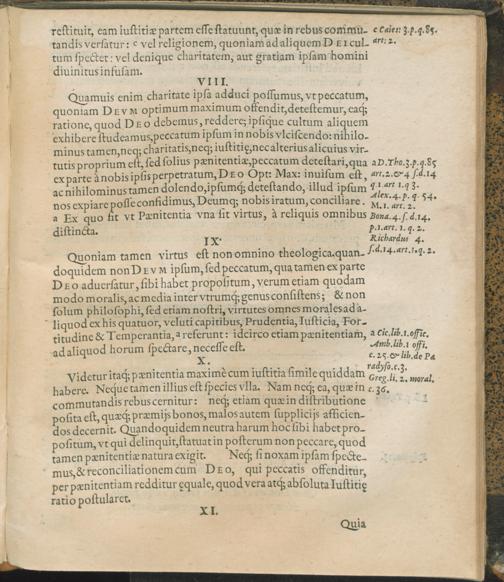 restituit, eam iustitiæ partem esse statuunt, quæ in rebus commu-
tandis versatur: c vel religionem, quoniam ad aliquem DEI cul-
tum spectet: vel denique charitatem, aut gratiam ipsam homini
diuinitus infusam.
c Caiet: 3.p.q.85.
art: 2.
VIII.
Quamuis enim charitate ipsa adduci possumus, vt peccatum,
quoniam DEVM optimum maximum offendit, detestemur, eaq́;
ratione, quod DEO debemus, reddere; ipsique cultum aliquem
exhibere studeamus, peccatum ipsum in nobis vlciscendo: nihilo-
minus tamen, neq; charitatis, neq; iustitię, nec alterius alicuius vir-
tutis proprium est, sed solius pænitentiæ, peccatum detestari, qua
ex parte à nobis ipsis perpetratum, DEO Opt: Max: inuisum est,
ac nihilominus tamen dolendo, ipsumq́; detestando, illud ipsum
nos expiare posse confidimus, Deumq; nobis iratum, conciliare.
a Ex quo fit vt Pænitentia vna sit virtus, à reliquis omnibus
distincta.
a D.Tho.3.p.q.85
art.2.&4 s.d.14
q.1.art 1.q 3.
Alex.4. p. q. 54.
M.1. art. 2.
Bona.4. s. d.14.
p.1.art. 1. q. 2.
Richardus 4.
s.d.14.art.1.q.2.
IX.
Quoniam tamen virtus est non omnino theologica. quan-
doquidem non DEVM ipsum, sed peccatum, qua tamen ex parte
DEO aduersatur, sibi habet propositum, verum etiam quodam
modo moralis, ac media inter vtrumq́; genus consistens; & non
solum philosophi, sed etiam nostri, virtutes omnes morales ad a-
liquod ex his quatuor, veluti capitibus, Prudentia, Iusticia, For-
titudine & Temperantia, a referunt: idcirco etiam pænitentiam,
ad aliquod horum spectare, necesse est.
a Cic.lib.1.offic.
Amb.lib.1 offi.
c. 25.&lib.de Pa
radyso.c.3.
Greg.li. 2. moral.
c.36.
X.
Videtur itaq; pænitentia maximè cum iustitia simile quiddam
habere. Neque tamen illius est species vlla. Nam neq; ea, quæ in
commutandis rebus cernitur: neq; etiam quæ in distributione
posita est, quæq́; præmijs bonos, malos autem supplicijs afficien-
dos decernit. Quandoquidem neutra harum hoc sibi habet pro-
positum, vt qui delinquit, statuat in posterum non peccare, quod
tamen pænitentiæ natura exigit. Neq; si noxam ipsam specte-
mus, & reconciliationem cum DEO, qui peccatis offenditur,
per pænitentiam redditur ęquale, quod vera atq́; absoluta Iustitię
ratio postularet.
XI.
Quia